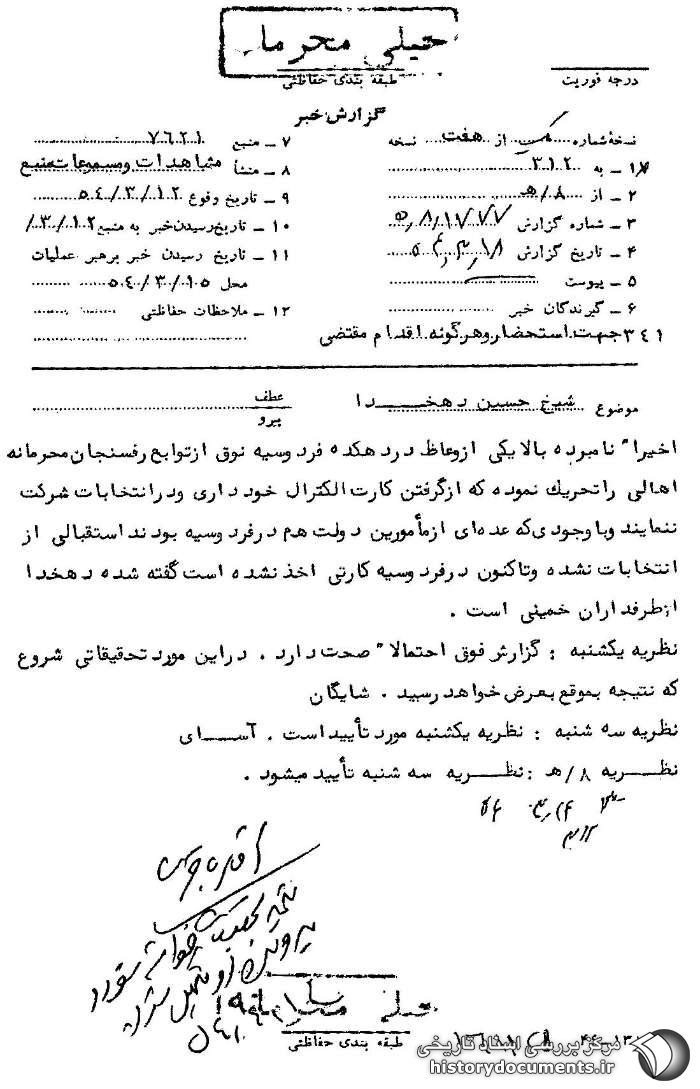 خیلی محرمانه
طبقه بندی حفاظتی
درجه فوریت
گزارش خبر
نسخهٔ شماره یک از هفت نسخه
۱ـ به ۳۱۲
۲ـ از ۸/هـ
۳ـ شماره گزارش
۴ـ تاریخ گزارش ۵۴,۳,۱۸
۵ـ پیوست
۶ـ گیرندگان خبر
۷ـ منبع ۷۶۲۱
۸ـ منشأ مشاهدات و مسموعات منبع
۹ـ تاریخ وقوع ۵۴/۳/۱۲
۱۰ـ تاریخ رسیدن خبر به منبع ۱۲/۳/
۱۱ـ تاریخ رسیدن خبر برهبر عملیات
محل ۵۴/۳/۱۵
۱۲ـ ملاحظات حفاظتی
۳۴۱ جهت استحضار و هرگونه اقدام مقتضی
موضوع شیخ حسین دهخدا
عطف
پیرو
اخیراً نامبرده بالا یکی ازوعاظ در دهکده فردوسیه نوق ازتوابع رفسنجان محرمانه
اهالی راتحریک نموده که ازگرفتن کارت الکترال خودداری ودرانتخابات شرکت
ننمایند وباوجودی‌که عده‌ای ازمأمورین دولت هم درفردوسیه بودند استقبالی از
انتخابات نشده وتاکنون درفردوسیه کارتی اخذ نشده است گفته شده دهخدا
ازطرفداران خمینی است .
نظریه یکشنبه : گزارش فوق احتمالاً صحت دارد . دراین مورد تحقیقاتی شروع
که نتیجه بموقع بعرض خواهد رسید . شایگان
نظریه سه شنبه : نظریه یکشنبه مورد تأیید است . آسای
نظریه ۸/هـ : نظریه سه شنبه تأیید میشود .
طبقه بندی حفاظتی
مرکز بررسی اسناد تاریخی
historydocuments.ir